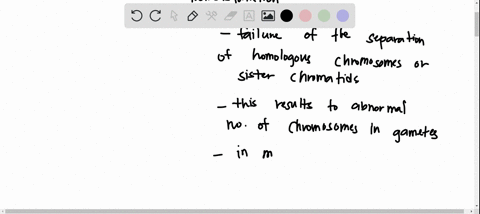 - failure of the separation
of homologous chromosomes or
sister chromatids
- this results to abnormal
no. of chromosomes in gametes
- in m